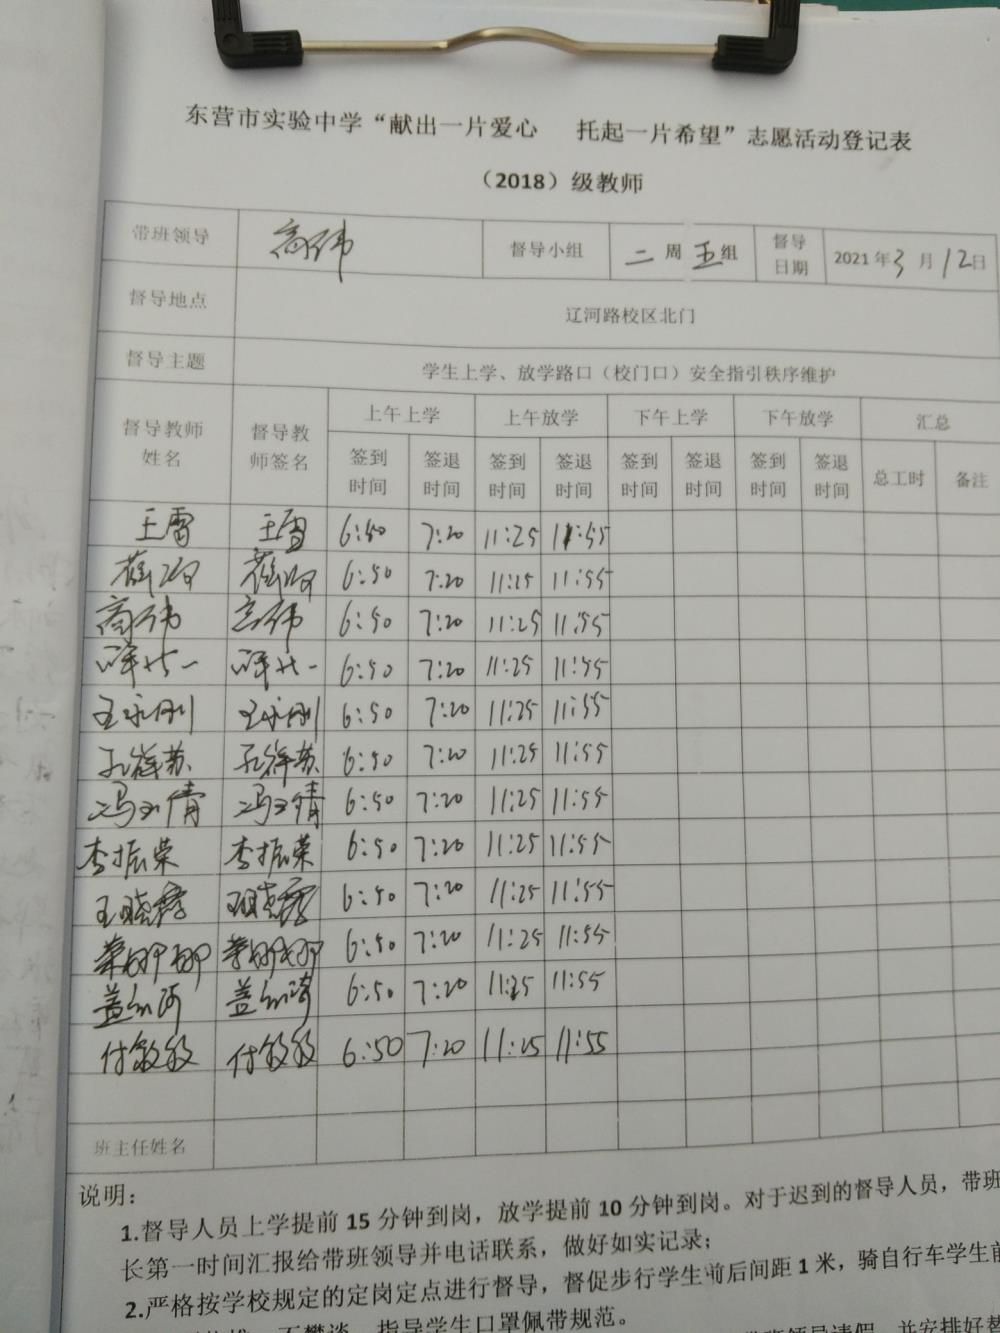 东营市实验中学“献出一片爱心 托起一片希望”志愿活动登记表
（2018）级教师
带班领导 高伟 督导小组 二周五组 督导日期 2021年3月12日
督导地点 辽河路校区北门
督导主题 学生上学、放学路口（校门口）安全指引秩序维护
督导教师姓名 督导教师签名 上午上学 上午放学 下午上学 下午放学 汇总
签到时间 签退时间 签到时间 签退时间 签到时间 签退时间 签到时间 签退时间 总工时 备注
王雷 王雷 6:50 7:20 11:25 11:55
6:50 7:20 11:25 11:55
高伟 高伟 6:50 7:20 11:25 11:55
6:50 7:20 11:25 11:55
王永刚 王永刚 6:50 7:20 11:25 11:55
孔祥苏 孔祥苏 6:50 7:20 11:25 11:55
冯玉倩 冯玉倩 6:50 7:20 11:25 11:55
李振荣 李振荣 6:50 7:20 11:25 11:55
王晓 王晓 6:50 7:20 11:25 11:55
荣娜娜 荣娜娜 6:50 7:20 11:25 11:55
盖 盖 6:50 7:20 11:25 11:55
付敏敏 付敏敏 6:50 7:20 11:25 11:55
班主任姓名
说明：
1.督导人员上学提前15分钟到岗，放学提前10分钟到岗。对于迟到的督导人员，带班
长第一时间汇报给带班领导并电话联系，做好如实记录；
2.严格按学校规定的定岗定点进行督导，督促步行学生前后间距1米，骑自行车学生前
不攀谈，指导学生口罩佩带规范。
领导请假，并安排好替